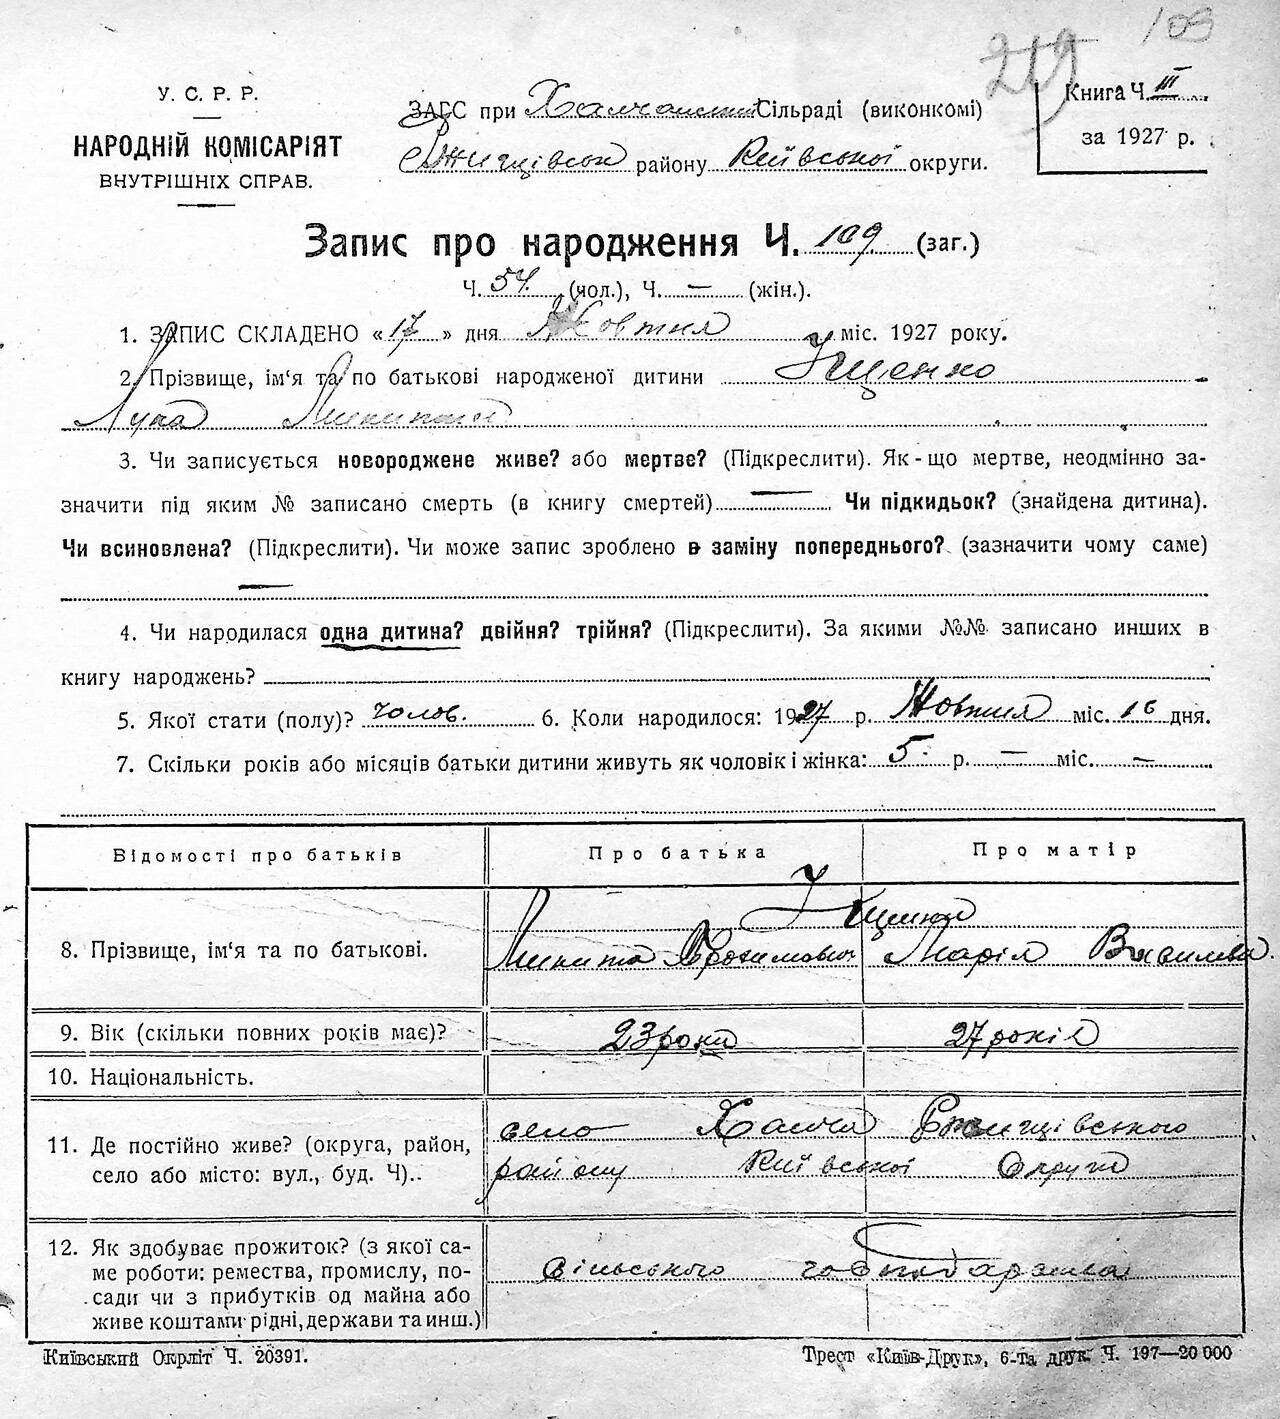 103
219
У. С. Р. Р.
НАРОДНІЙ КОМІСАРІЯТ
ВНУТРІШНІХ СПРАВ.
ЗАГС при Халчанській Сільраді (виконкомі)
Ржищівськ району Київської округи.
Книга Ч. III
за 1927 р.
Запис про народження Ч. 109 (заг.)
Ч. 54 (чол.), Ч. — (жін.).
1. ЗАПИС СКЛАДЕНО «17» дня Жовтня міс. 1927 року.
2. Прізвище, ім'я та по батькові народженої дитини Іщенко
Лука Микитов
3. Чи записується новороджене живе? або мертве? (Підкреслити). Як-що мертве, неодмінно за-
значити під яким № записано смерть (в книгу смертей) — Чи підкидьок? (знайдена дитина).
Чи всиновлена? (Підкреслити). Чи може запис зроблено в заміну попереднього? (зазначити чому саме)
—
4. Чи народилася одна дитина? двійня? трійня? (Підкреслити). За якими №№ записано инших в
книгу народжень?
5. Якої стати (полу)? чолов. 6. Коли народилося: 1927 р. Жовтня міс. 16 дня.
7. Скільки років або місяців батьки дитини живуть як чоловік і жінка: 5 р. — міс. —
Відомості про батьків Про батька Про матір
Іщенки
8. Прізвище, ім'я та по батькові. Микита Трохимович Марія Василівна
9. Вік (скільки повних років має)? 23 роки 27 років
10. Національність.
11. Де постійно живе? (округа, район, село Халча Ржищівського
село або місто: вул., буд. Ч).. району Київської Округи
12. Як здобуває прожиток? (з якої са-
ме роботи: ремества, промислу, по- сільського господарства
сади чи з прибутків од майна або
живе коштами рідні, держави та инш.)
Київський Окрліт Ч. 20391.
Трест «Київ-Друк», 6-та друк. Ч. 197—20 000